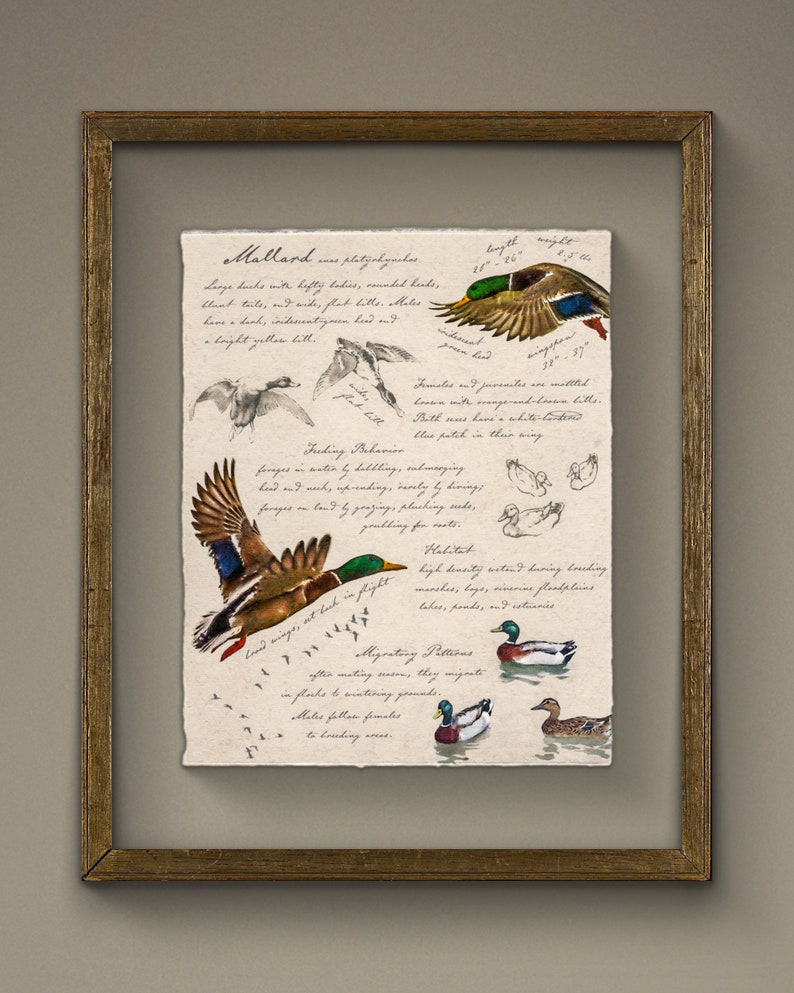 Mallard anas platyrhynchos
Large ducks with hefty bodies, rounded heads,
blunt tails, and wide, flat bills. Males
have a dark, iridescent-green head and
a bright yellow bill.
length
20" - 26"
weight
2.5 lbs
iridescent
green head
wingspan
32" - 37"
wide,
flat bill
Females and juveniles are mottled
brown with orange-and-brown bills.
Both sexes have a white-bordered
blue patch in their wing
Feeding Behavior
forages in water by dabbling, submerging
head and neck, up-ending, rarely by diving;
forages on land by grazing, plucking seeds,
grubbing for roots.
Habitat
high density wetand during breeding
marshes, bogs, riverine floodplains
lakes, ponds, and estuaries
broad wings, set back in flight
Migratory Patterns
after mating season, they migrate
in flocks to wintering grounds.
Males follow females
to breeding areas.